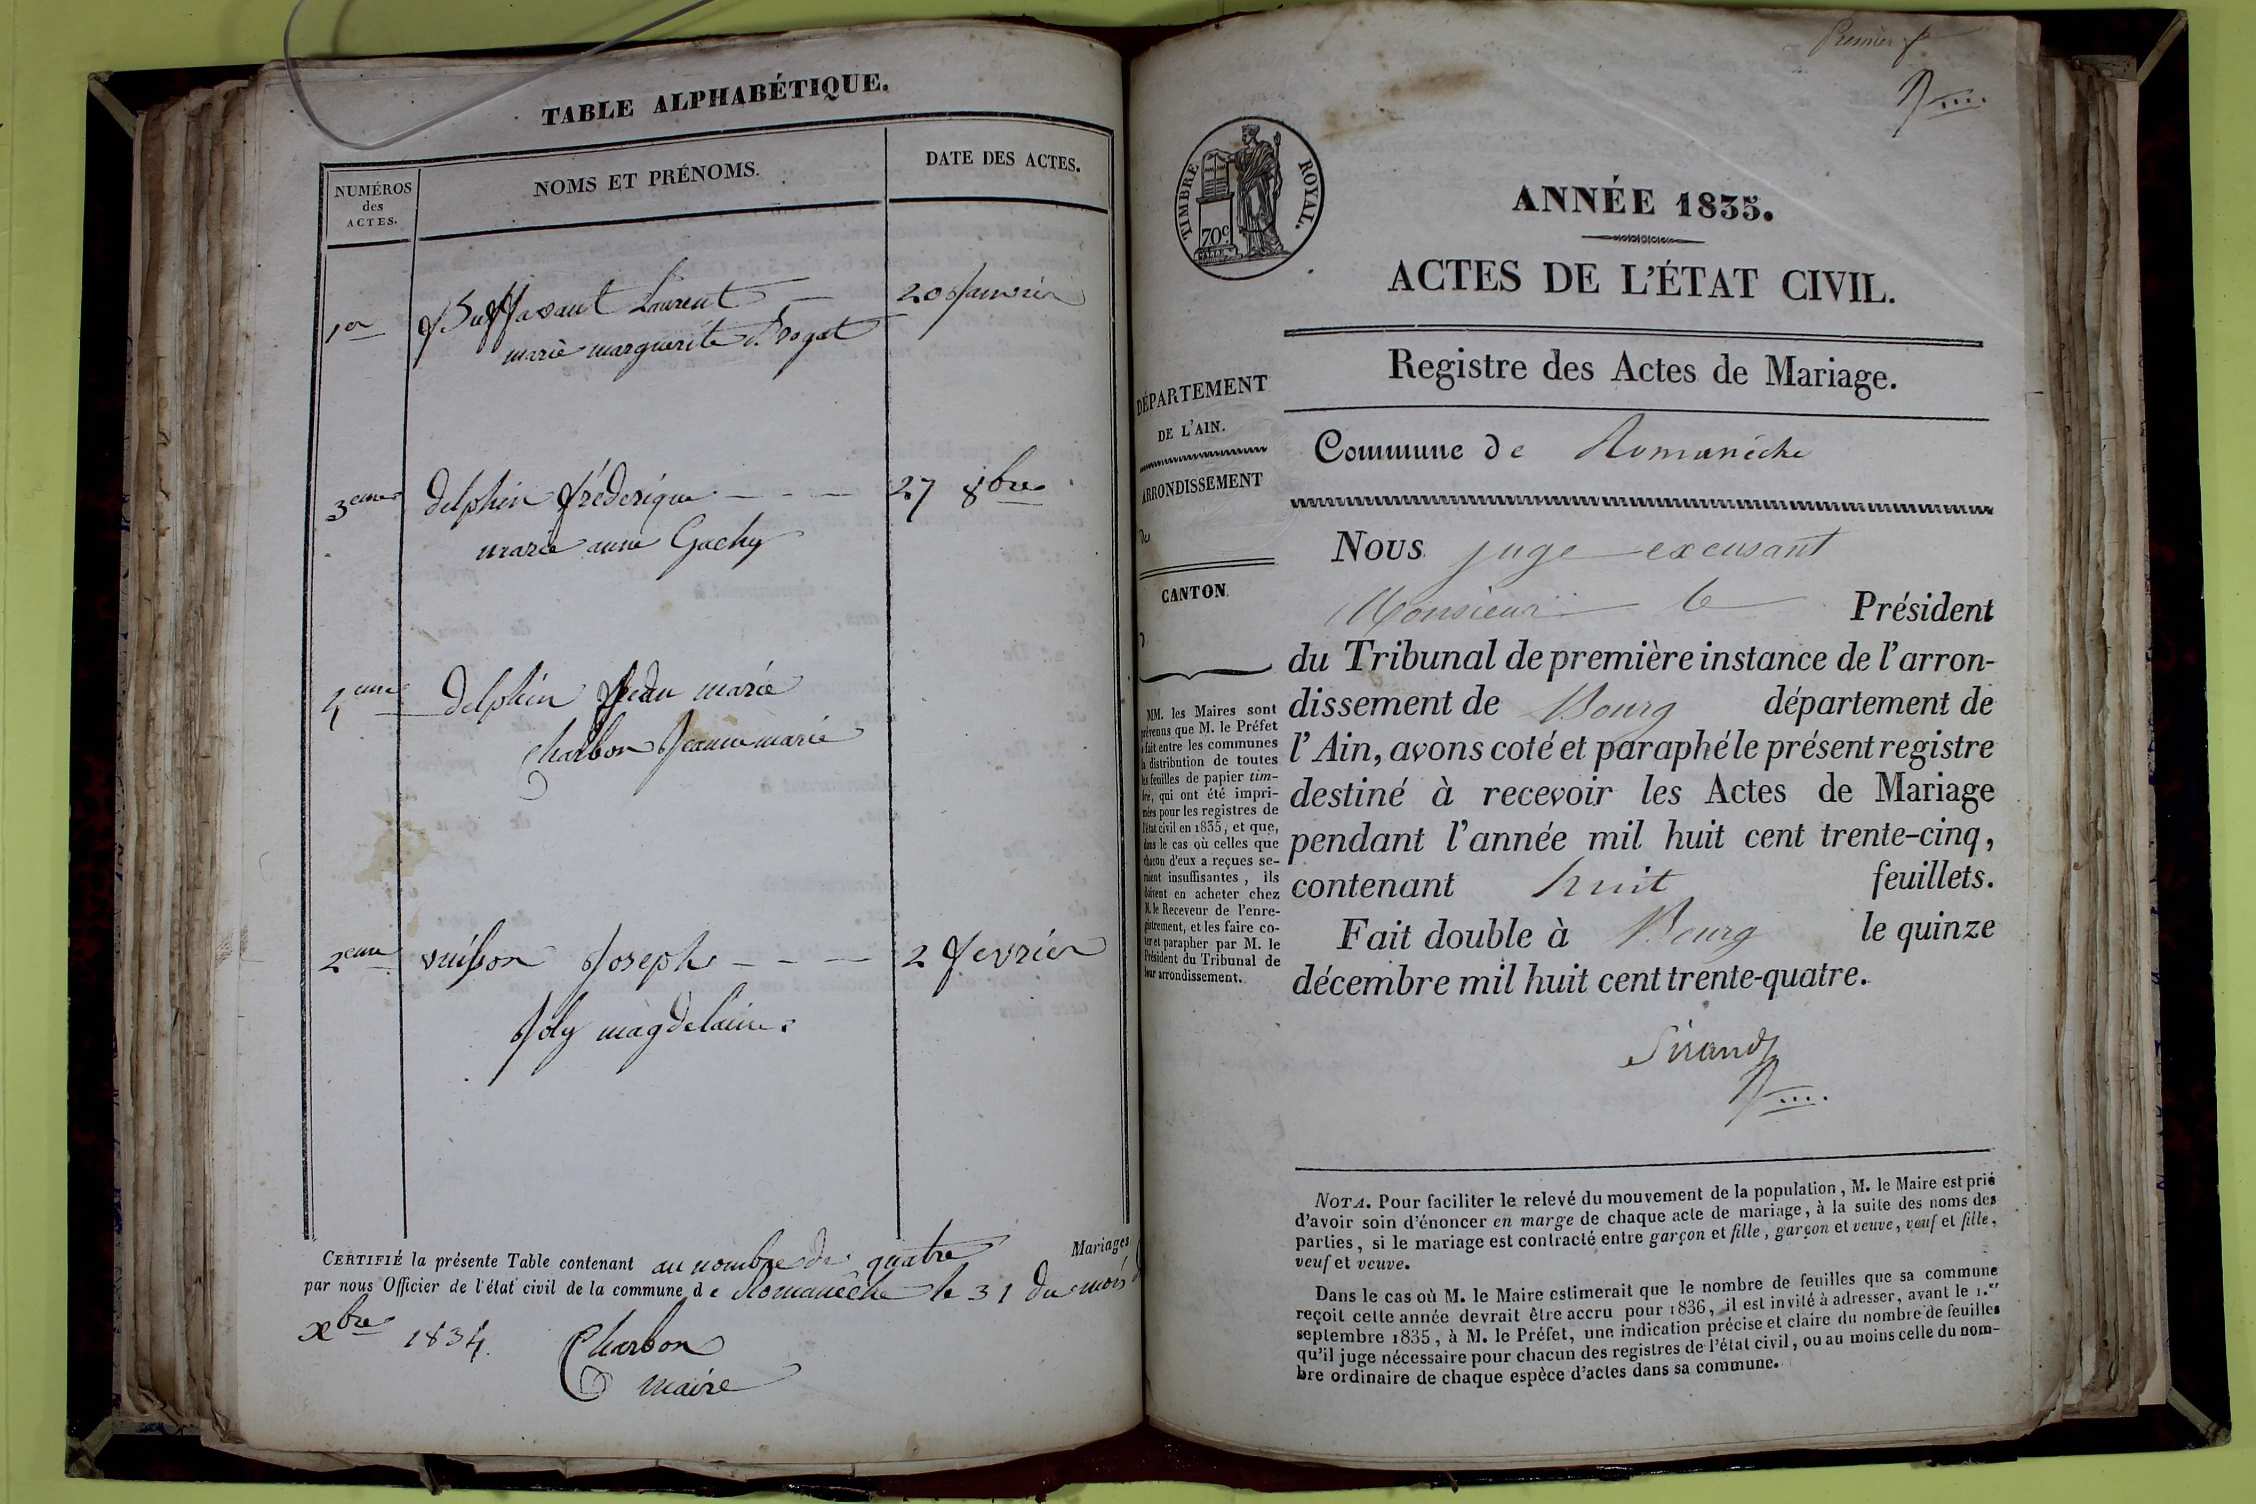 TABLE ALPHABÉTIQUE.
NUMÉROS
des
ACTES.
NOMS ET PRÉNOMS.
DATE DES ACTES.
1er Buffavant Laurent — 20 Janvier
marie marguerite
3eme delphin fréderique - - - 27 8bre
marie anne Gachy
4eme delphin Jean marie
Charbon Jeanne marie
2eme vuison Joseph - - - 2 fevrier
Joly magdelaine.
CERTIFIÉ la présente Table contenant au nombre de quatre Mariages
par nous Officier de l'état civil de la commune de Romanêche le 31 du mois
xbre 1834. Charbon
maire
Premier
TIMBRE ROYAL.
70c
ANNÉE 1835.
ACTES DE L'ÉTAT CIVIL.
Registre des Actes de Mariage.
DÉPARTEMENT
DE L'AIN.
ARRONDISSEMENT
de
CANTON
MM. les Maires sont
prévenus que M. le Préfet
a fait entre les communes
la distribution de toutes
les feuilles de papier tim-
bré, qui ont été impri-
mées pour les registres de
l'état civil en 1835, et que,
dans le cas où celles que
chacun d'eux a reçues se-
raient insuffisantes, ils
doivent en acheter chez
M. le Receveur de l'enre-
gistrement, et les faire co-
ter et parapher par M. le
Président du Tribunal de
leur arrondissement.
Commune de Romanêche
NOUS juge excusant
Monsieur le Président
du Tribunal de première instance de l'arron-
dissement de Bourg département de
l'Ain, avons coté et paraphé le présent registre
destiné à recevoir les Actes de Mariage
pendant l'année mil huit cent trente-cinq,
contenant huit feuillets.
Fait double à Bourg le quinze
décembre mil huit cent trente-quatre.
Sirand
NOTA. Pour faciliter le relevé du mouvement de la population, M. le Maire est prié
d'avoir soin d'énoncer en marge de chaque acte de mariage, à la suite des noms des
parties, si le mariage est contracté entre garçon et fille, garçon et veuve, veuf et fille,
veuf et veuve.
Dans le cas où M. le Maire estimerait que le nombre de feuilles que sa commune
reçoit cette année devrait être accru pour 1836, il est invité à adresser, avant le 1.er
septembre 1835, à M. le Préfet, une indication précise et claire du nombre de feuilles
qu'il juge nécessaire pour chacun des registres de l'état civil, ou au moins celle du nom-
bre ordinaire de chaque espèce d'actes dans sa commune.